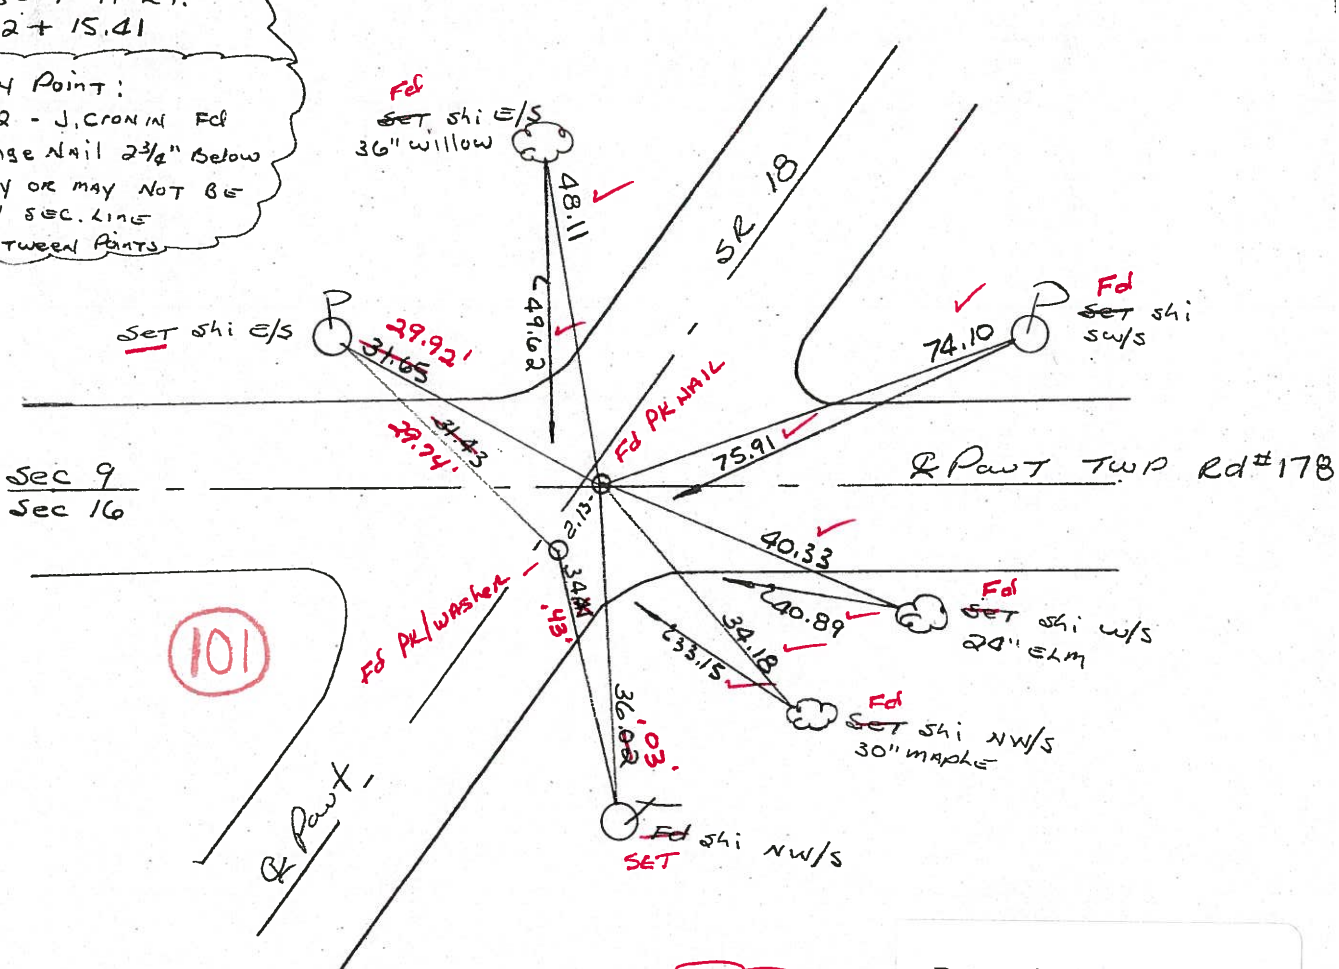 2 + 15.41
Y Point:
2 - J. Cronin Fd
nge Nail 2 3/4" Below
Y or may not be
sec. line
tween Points
Fd
SET shi E/S
36" willow
48.11
49.62
SR 18
P
SET shi E/S
29.92'
31.65
31.43
29.74'
Fd PK NAIL
P
Fd
SET shi
SW/S
74.10
75.91
Sec 9
Sec 16
℄ Pav't Twp Rd #178
2.13'
Fd PK/washer
34
.43'
40.33
40.89
Fd
SET shi W/S
24" ELM
34.18
33.15
Fd
SET shi NW/S
30" MAPLE
101
36.02
'03'
T
Fd shi NW/S
SET
℄ Pav't